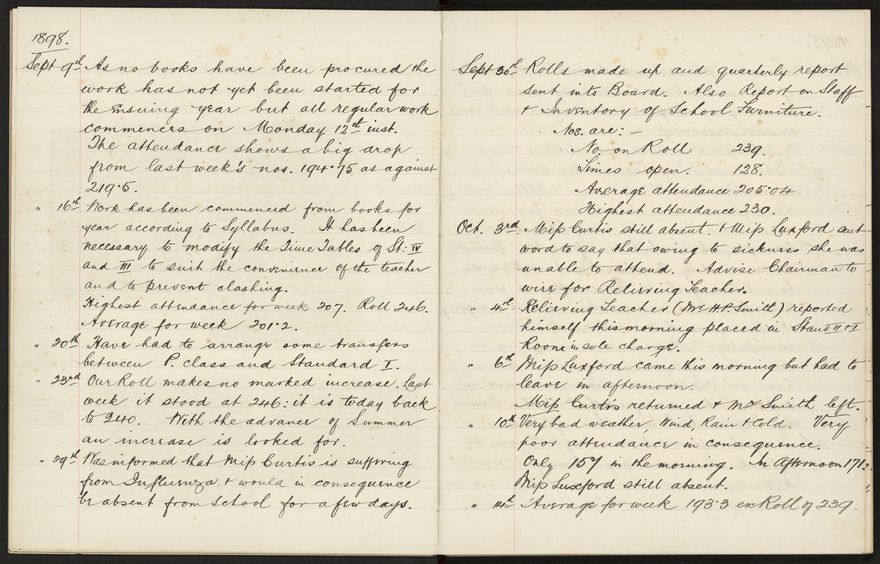 1898.
Sept 9th As no books have been procured the
work has not yet been started for
the ensuing year but all regular work
commences on Monday 12th inst.
The attendance shows a big drop
from last week's nos. 194.75 as against
219.5.
" 16th Work has been commenced from books for
year according to Syllabus. It has been
necessary to modify the Time Tables of St: IV
and III to suit the convenience of the teacher
and to prevent clashing.
Highest attendance for week 207. Roll 246.
Average for week 201.2.
" 20th Have had to arrange some transfers
between P. class and Standard I.
" 23rd Our Roll makes no marked increase. Last
week it stood at 246: it is today back
to 240. With the advance of Summer
an increase is looked for.
" 29th Was informed that Miss Curtis is suffering
from Influenza & would in consequence
be absent from School for a few days.
Sept 30th Rolls made up and quarterly report
sent into Board. Also Report on Staff
& Inventory of School Furniture.
Nos. are: -
No. on Roll 239.
Times open. 128.
Average attendance 205.04
Highest attendance 230.
Oct. 3rd Miss Curtis still absent. & Miss Luxford sent
word to say that owing to sickness she was
unable to attend. Advise Chairman to
wire for Relieving Teacher.
" 4th Relieving Teacher (Mr H.P. Smith) reported
himself this morning placed in Stand II & I
Room in sole charge.
" 6th Miss Luxford came this morning but had to
leave in afternoon.
Miss Curtis returned & Mr Smith left.
" 10th Very bad weather, Wind, Rain & Cold. Very
poor attendance in consequence.
Only 157 in the morning. In Afternoon 171.
Miss Luxford still absent.
" 14th Average for week 193.3 ex Roll of 239.